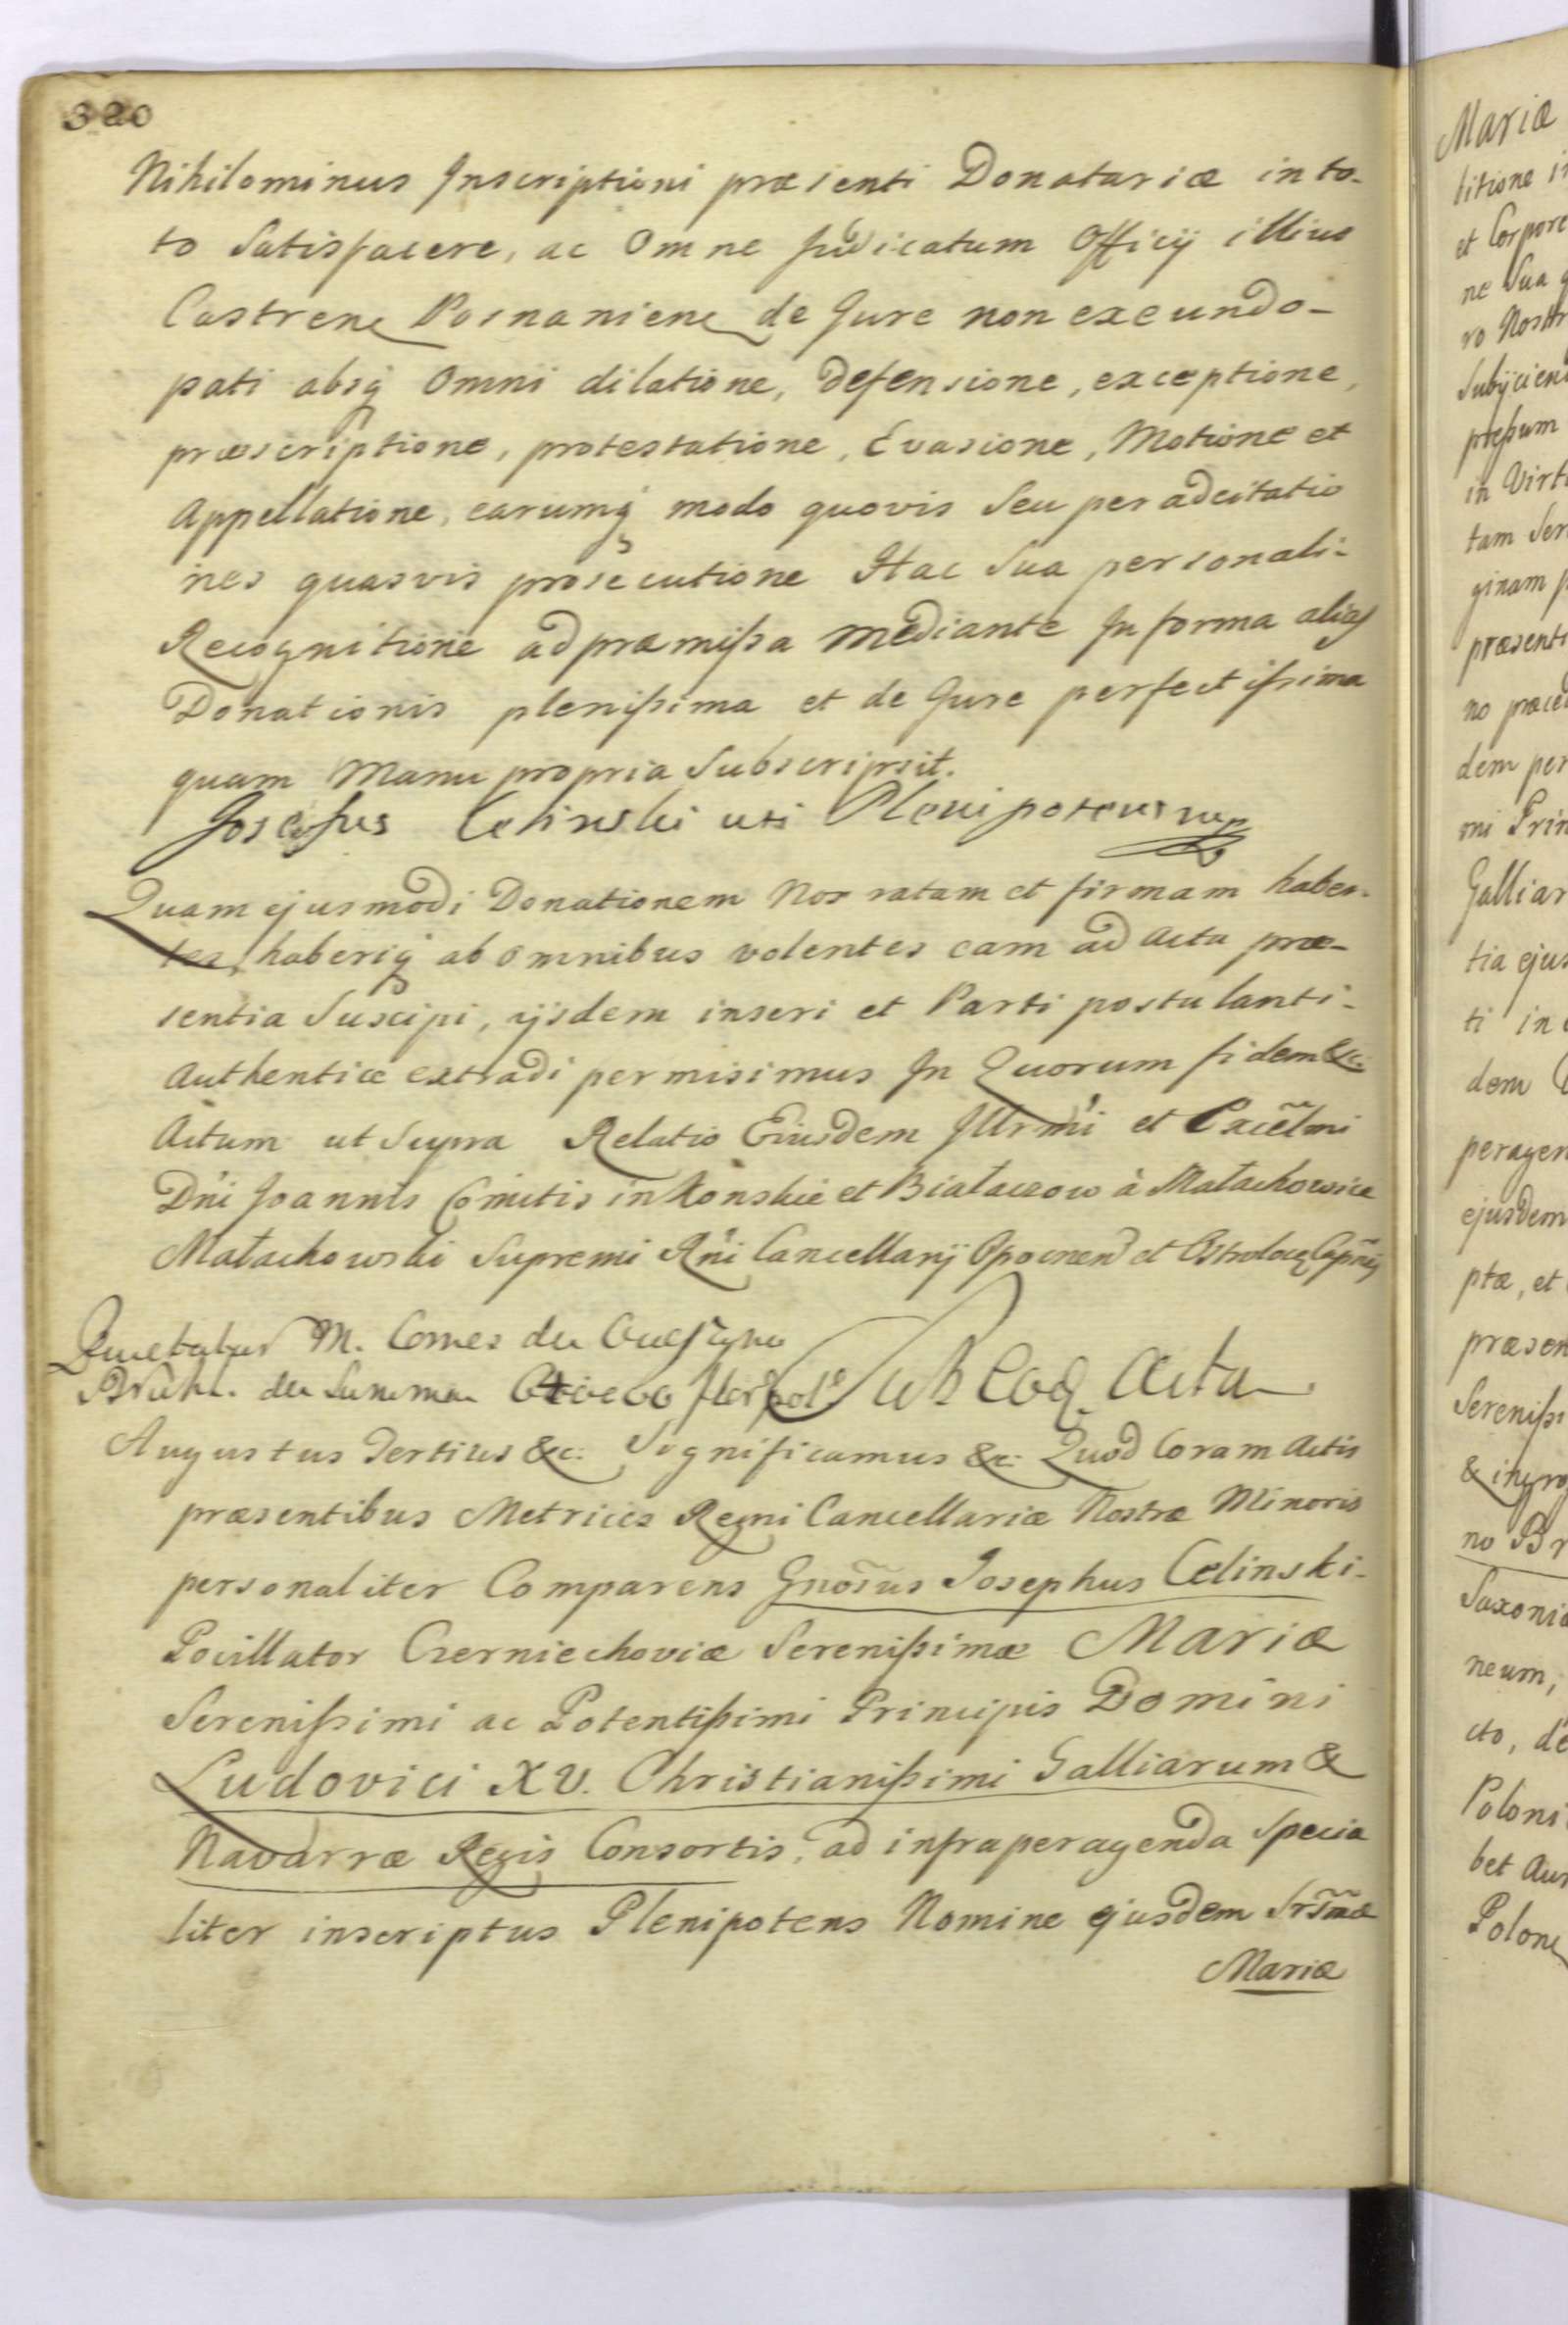 320
Nihilominus Inscriptioni præsenti Donatariæ in to-
to Satisfacere, ac Omne Judicatum Officÿ illius
Castren Posnanien de Jure non exeundo-
pati absq Omni dilatione, defensione, exceptione,
præscriptione, protestatione, Evasione, Motione et
Appellatione, earumq modo quovis Seu per adcitatio
nes quasvis prosecutione Hac Sua personali-
Recognitione ad præmissa mediante In forma alias
Donationis plenissima et de Jure perfectissima
quam Manu propria Subscripsit.
Josephus Celinski uti Plenipotens mp
Quam ejusmodi Donationem Nos ratam et firmam haben-
tes, haberiq ab omnibus volentes eam ad Acta præ-
sentia Suscipi, ijsdem inseri et Parti postulanti-
Authenticæ extradi permisimus In Quorum fidem &c.
Actum ut Supra Relatio Eiusdem Illrmi et Excellmi
Dni Joannis Comitis in Konskie et Białaczow à Małachowice
Małachowski Supremi Rni Cancellarÿ Opocnen et Ostrolec Capnei
Quietatur M. Comes de
Brühl. de Summa Sub Eoq Actu
Augustus Tertius &c: Significamus &c: Quod Coram Actis
præsentibus Metrices Regni Cancellariæ Nostræ Minoris
personaliter Comparens Gnosus Josephus Celinski-
Pocillator Czerniechoviæ Serenissimæ Mariæ
Serenissimi ac Potentissimi Principis Domini
Ludovici XV. Christianissimi Galliarum &
Navarræ Regis Consortis, ad infra peragenda Specia
liter inscriptus Plenipotens Nomine ejusdem Srsmæ
Mariæ
Mariæ
litione
et Corpore
ne Sua
ro Nostr
Subÿcien
pressum
in Virt
tam Ser
ginam
præsenti
no præce
dem per
mi Prin
Galliar
tia ejus
ti in
dem
peragen
ejusdem
ptæ, et
præsen
Serenissi
& ingro
no Br
Saxoniæ
neum,
cto, de
Poloni
bet Au
Polon